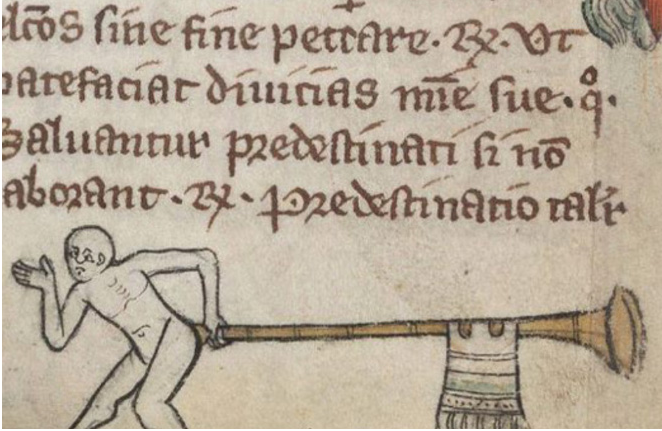 sine fine peccare. R̷. Ut
patefaciat divicias mīe sue. q̊.
Saluantur predestinati si nō
laborant. R̷. Predestinatio talr̄